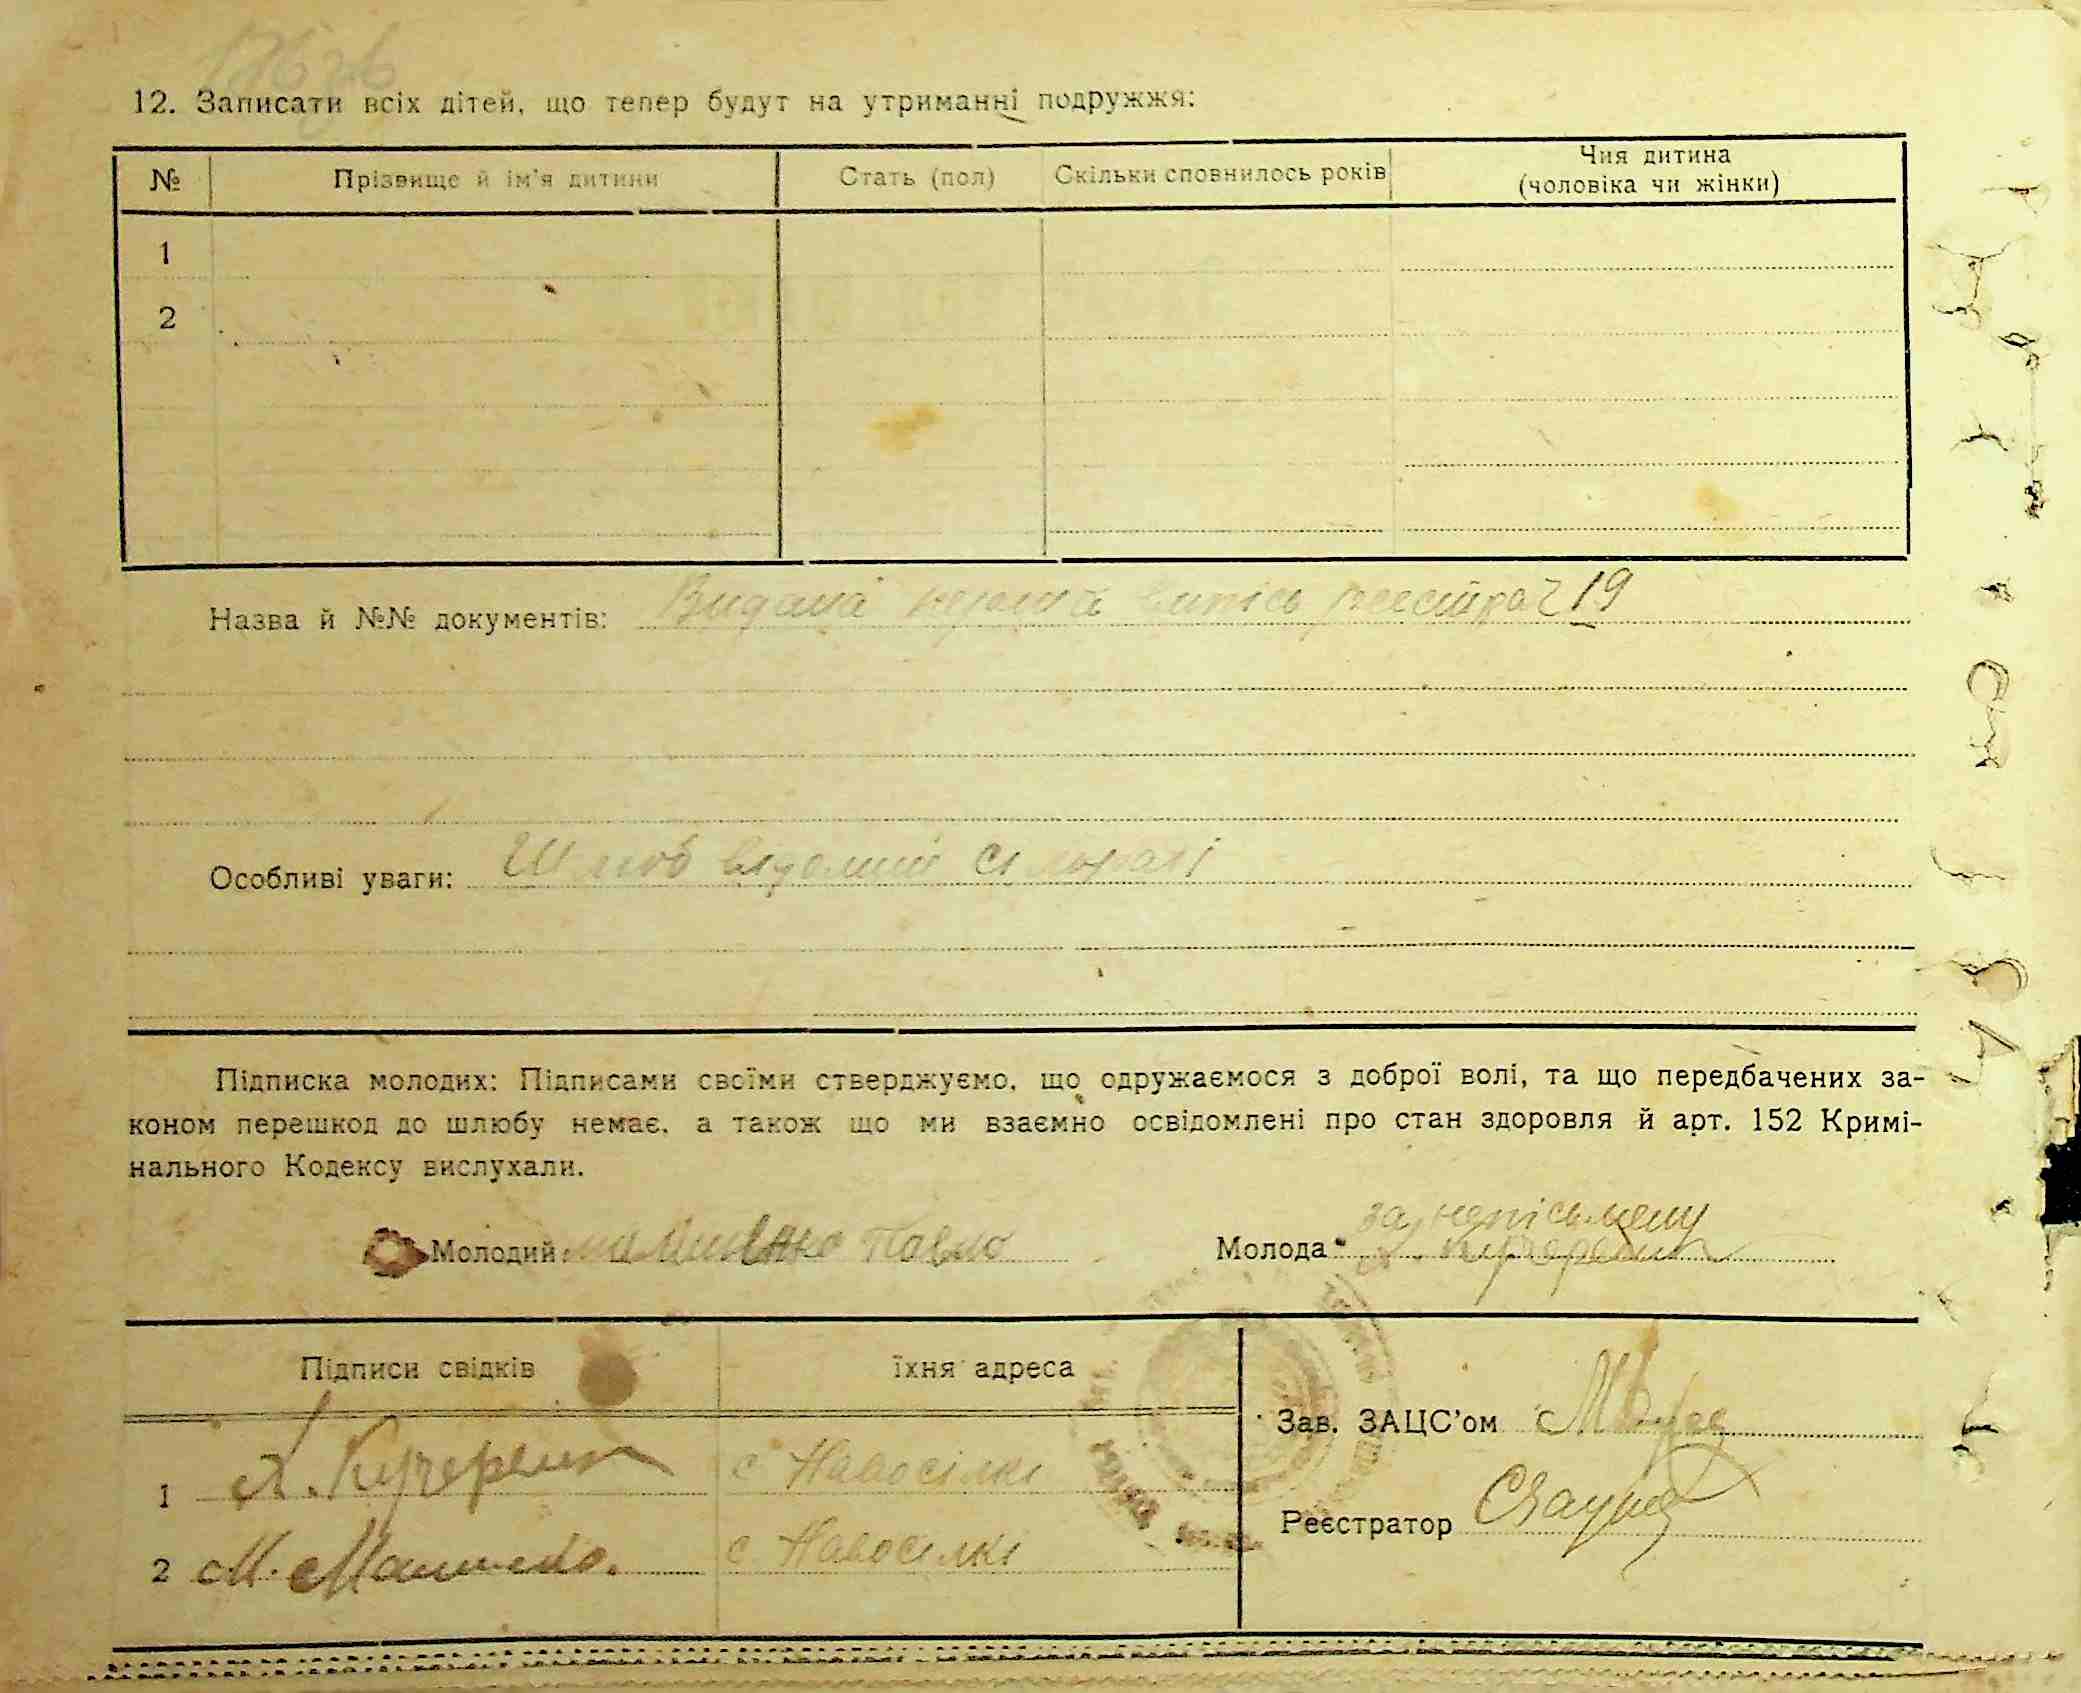 12. Записати всіх дітей, що тепер будут на утриманні подружжя:
№ Прізвище й ім'я дитини Стать (пол) Скільки сповнилось років Чия дитина (чоловіка чи жінки)
1
2
Назва й №№ документів: Видана 19
Особливі уваги: Шлюб
Підписка молодих: Підписами своїми стверджуємо, що одружаємося з доброї волі, та що передбачених за-
коном перешкод до шлюбу немає, а також що ми взаємно освідомлені про стан здоровля й арт. 152 Кримі-
нального Кодексу вислухали.
за неписьмену
Молодий Павло Молода
Підписи свідків їхня адреса
Зав. ЗАЦС'ом
1 с Новосілки
Реєстратор
2 с Новосілки